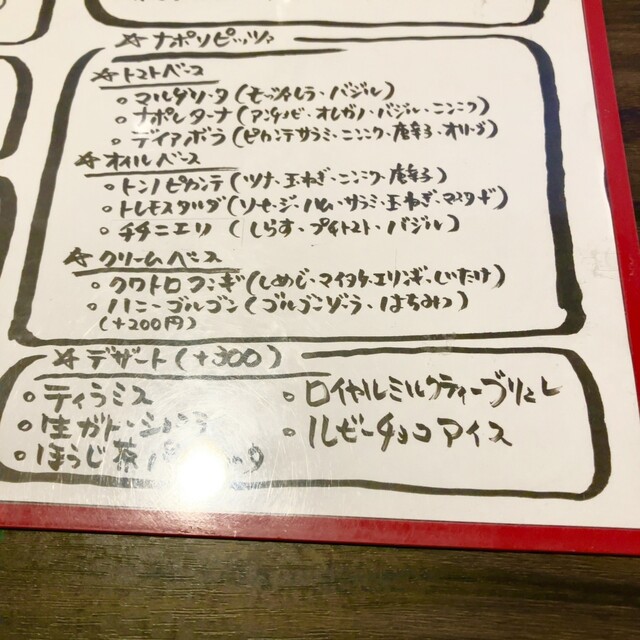 ☆ナポリピッツァ
☆トマトベース
○マルゲリータ(モッツァレラ・バジル)
○ナポレターナ(アンチョビ・オレガノ・バジル・ニンニク)
○ディアボラ(ピカンテサラミ・ニンニク・唐辛子・オリーブ)
☆オイルベース
○トンノピカンテ(ツナ・玉ねぎ・ニンニク・唐辛子)
○トレモスタルダ(ソーセージ・ハム・サラミ・玉ねぎ・マスタード)
○チチニエリ(しらす・プチトマト・バジル)
☆クリームベース
○クワトロフンギ(しめじ・マイタケ・エリンギ・しいたけ)
○ハニーゴルゴン(ゴルゴンゾーラ・はちみつ)
(+200円)
☆デザート(+300)
○ティラミス
○生ガトーショコラ
○ほうじ茶
○ロイヤルミルクティーブリュレ
○ルビーチョコアイス